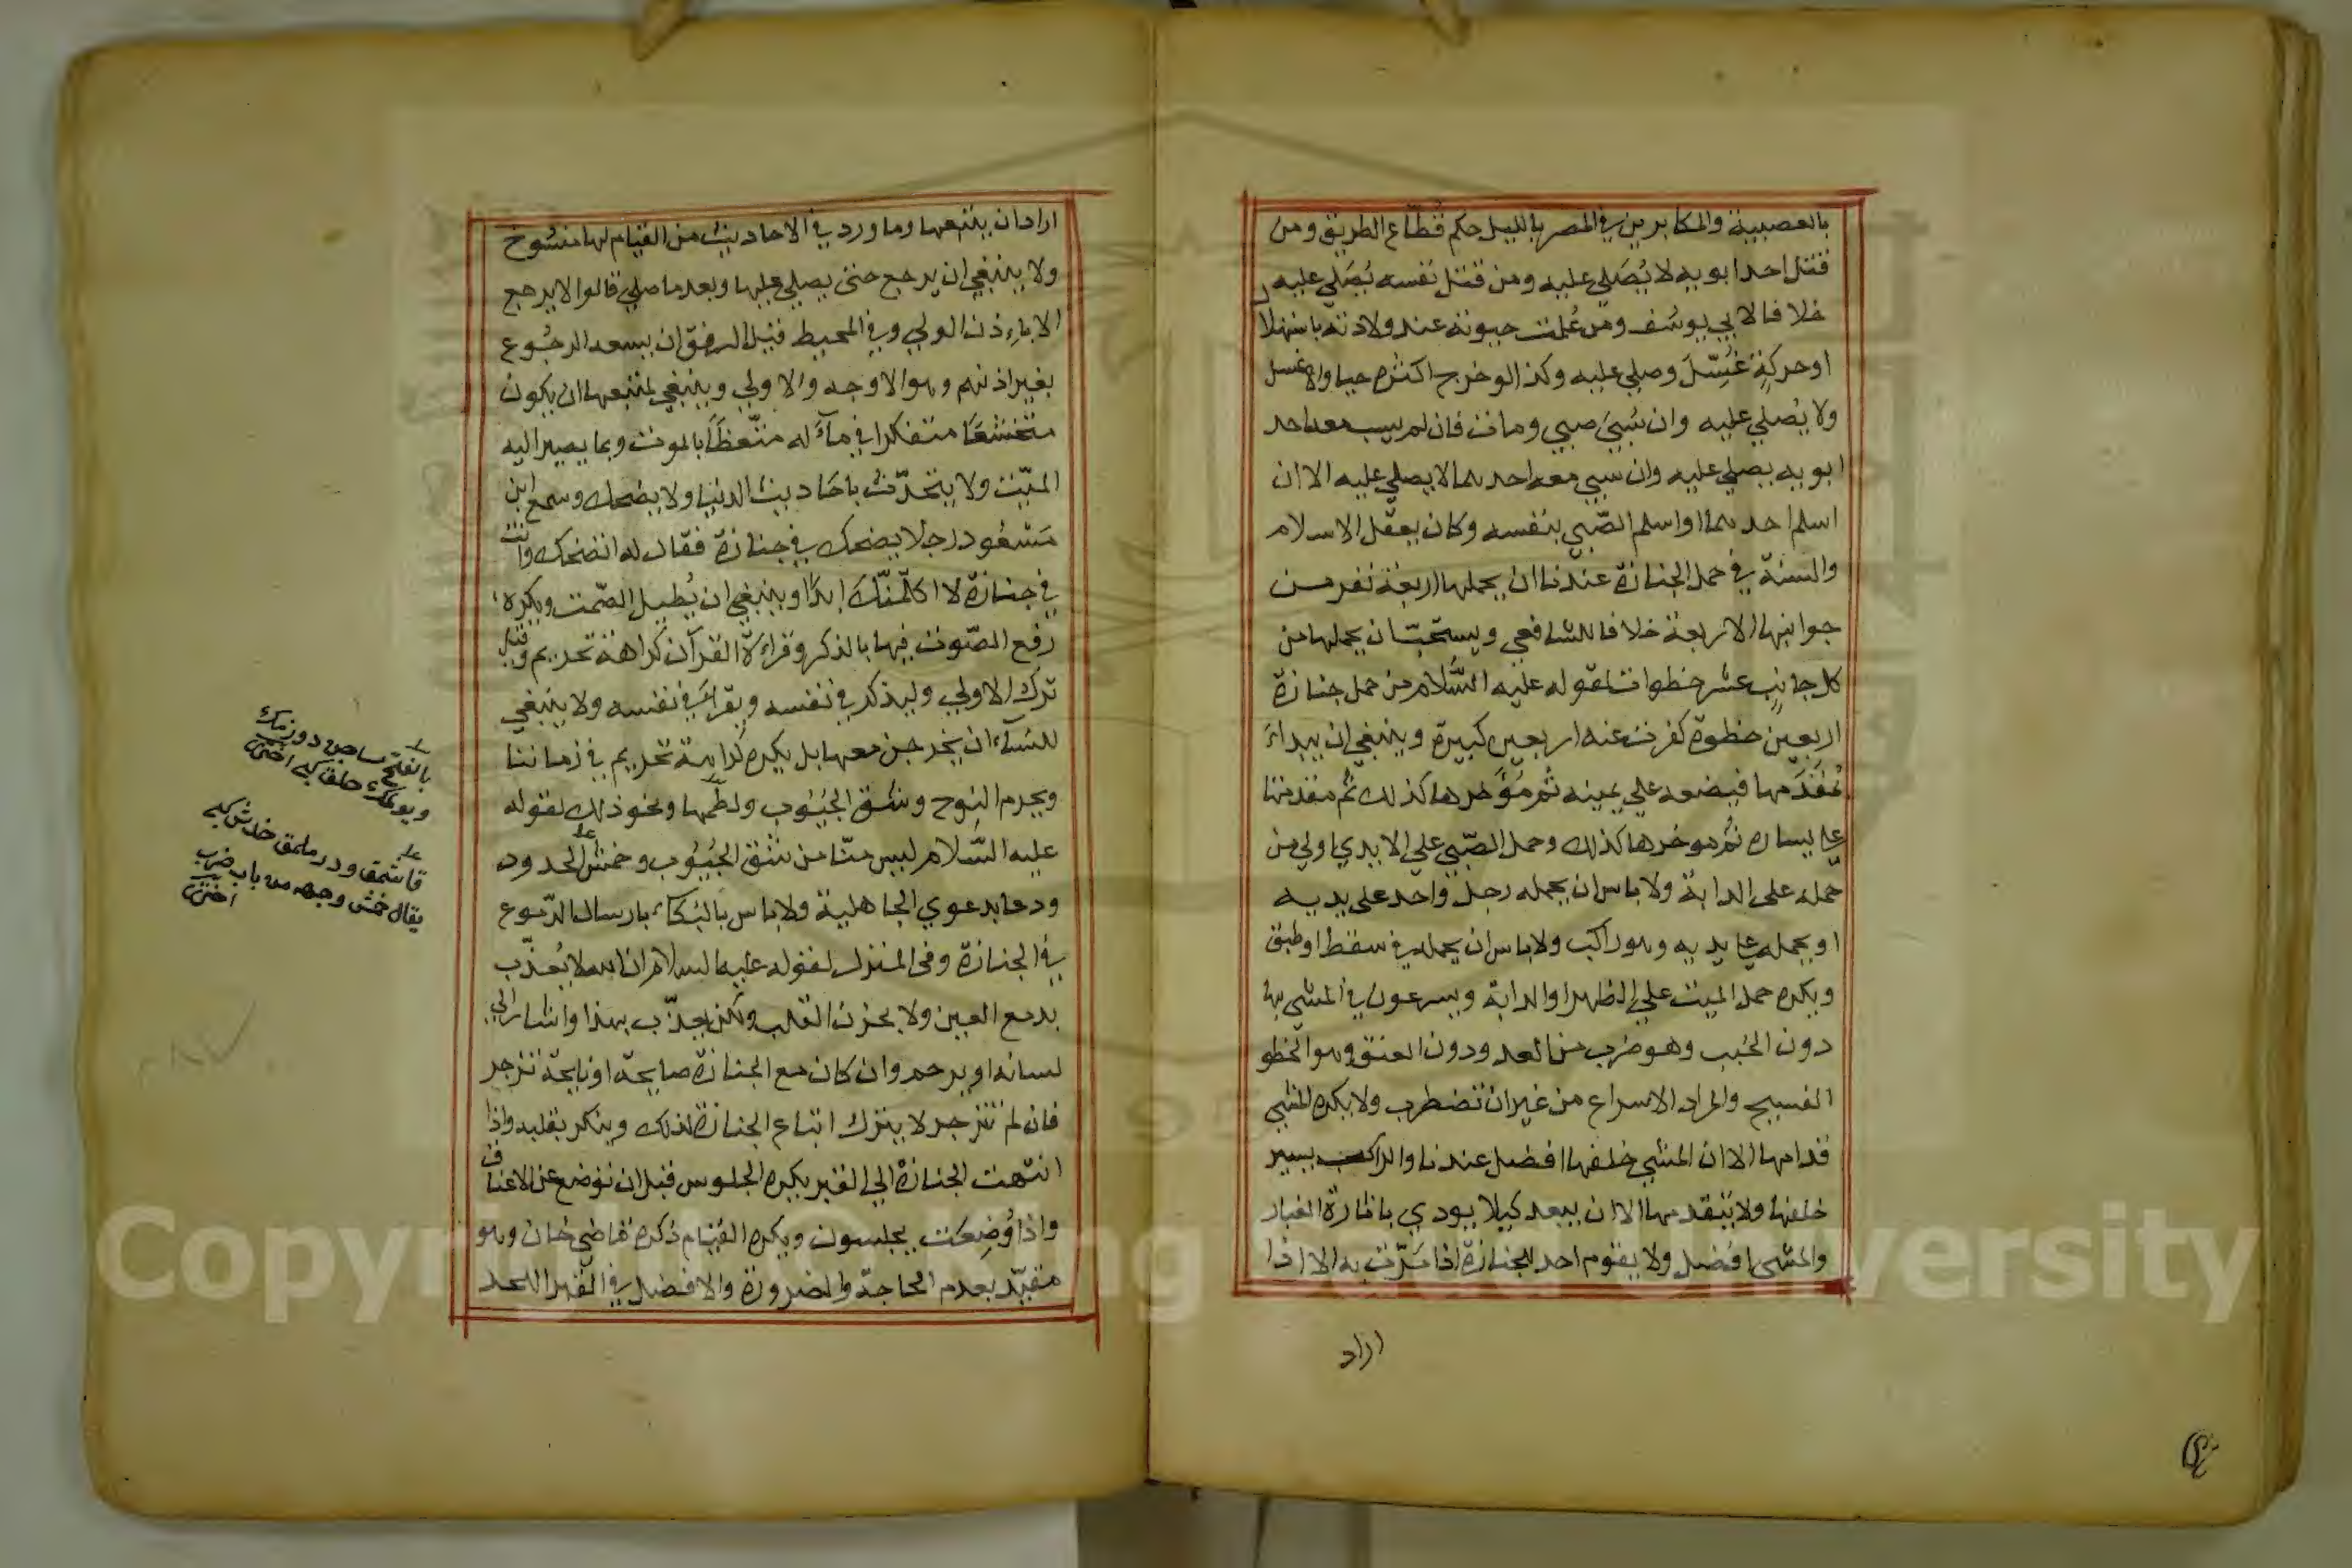 بالعصبية والمكابرين في المصر بالليل حكم قُطّاع الطريق ومن
قتل احد ابويه لا يُصَلي عليه ومن قتل نفسه يُصَلي عليه
خلافا لابي يوسُف ومن عُلمت حيوته عند ولادته باستهلال
او حركةٍ غُسِّلَ وصلي عليه وكذا لو خرج اكثره حيا والا غسل
ولا يُصلي عليه وان سُبيَ صبي ومات فان لم يسب معه احد
ابويه يصلي عليه وان سبي معه احدهما لا يصلي عليه الا ان
اسلم احدهما او اسلم الصّبي بنفسه وكان يعقل الاسلام
والسنة في حمل الجنازة عندنا ان يحملها اربعة نفر من
جوانبها الاربعة خلافا للشافعي ويستحبّ ان يحملها من
كل جانِبٍ عشر خطوات لقوله عليه السَّلام من حمل جنازة
اربعين خطوة كفرت عنه اربعين كبيرة وينبغي ان يبداءَ
بمُقَدَمها فيضعه علي يمينه ثُم مُؤَخرها كذلك ثُم مقدمتها
علي يساره ثُم موخرها كذلك وحمل الصّبي علي الايدي اولي من
حمله على الدابة ولا باس ان يحمله رجل واحد على يديه
او يحمله علي يديه وهو راكب ولا باس ان يحمله في سقط او طبق
ويكره حمل الميت علي الظهر او الدابة ويسرعون في المشي بها
دون الخَبب وهو ضرب من العدو ودون العنق وهو الخطو
الفسيح والمراد الاسراع من غير ان تضطرب ولا يكره المشي
قدامها الا ان المشي خلفها افضل عندنا والراكب يسير
خلفها ولا يتقدمها الا ان يبعد كيلا يوذي باثارة الغبار
والمشي افضل ولا يقوم احد للجنازة اذا مَرّت به الا اذا
اراد
اراد ان يتبعها وما ورد في الاحاديث من القيام لها منسوخ
ولا ينبغي ان يرجع حتى يصلي عليها وبعد ما صلي قالوا لا يرجع
الا باِذن الولي وفي المحيط قيل الرفق ان يسعه الرجُوع
بغير اذنهم وهو الاوجه والاولي وينبغي لمتبعها ان يكون
متخشعًا متفكرا في مآله متّعظًا بالموت وبما يصير اليه
الميّت ولا يتحدّث باحَاديث الدنيا ولا يضحك وسمع ابن
مَسْعُود رجلا يضحك في جنازة فقال له اتضحك وانت
في جنازة لا اكلّمنّك ابدًا وينبغي ان يُطيل الصّمت ويكره
رفع الصّوت فيها بالذكر وقراءَة القرآن كراهة تحريم وقيل
ترك الاولي وليذكر في نفسه ويقرأ في نفسه ولا ينبغي
للنسَآء ان يخرجن معها بل يكره كراهة تحريم في زماننا
ويحرم النوح وشق الجُيُوب ولطمها ونحو ذلك لقوله
عليه السَّلام ليس منّا من شق الجُيُوب وخمش الخدود
ودعا بدعوي الجاهلية ولا باس بالبُكاء بارسال الدّموع
في الجنازة وفي المنزل لقوله عليه السلام ان الله لا يُعذّب
بدمع العين ولا بحزن القلب ولكن يعذّب بهذا واشار الي
لسانه او يرحم وان كان مع الجنازة صايحة او نايحة تزجر
فان لم تنزجر لا يترك اتباع الجنازة لذلك وينكر بقلبه واذا
انتهت الجنازة الي القبر يكره الجلوس قبل ان توضع عن الاعناق
واذا وُضِعَت يجلسون ويكره القيام ذكره قاضي خان وهو
مقيّد بعدم الحاجة والضرورة والافضل في القبر اللحد
بالفتح ساچ دوزمك
حلق كبى اختري
يقال خمش وجهه من باب ضرب
اختري